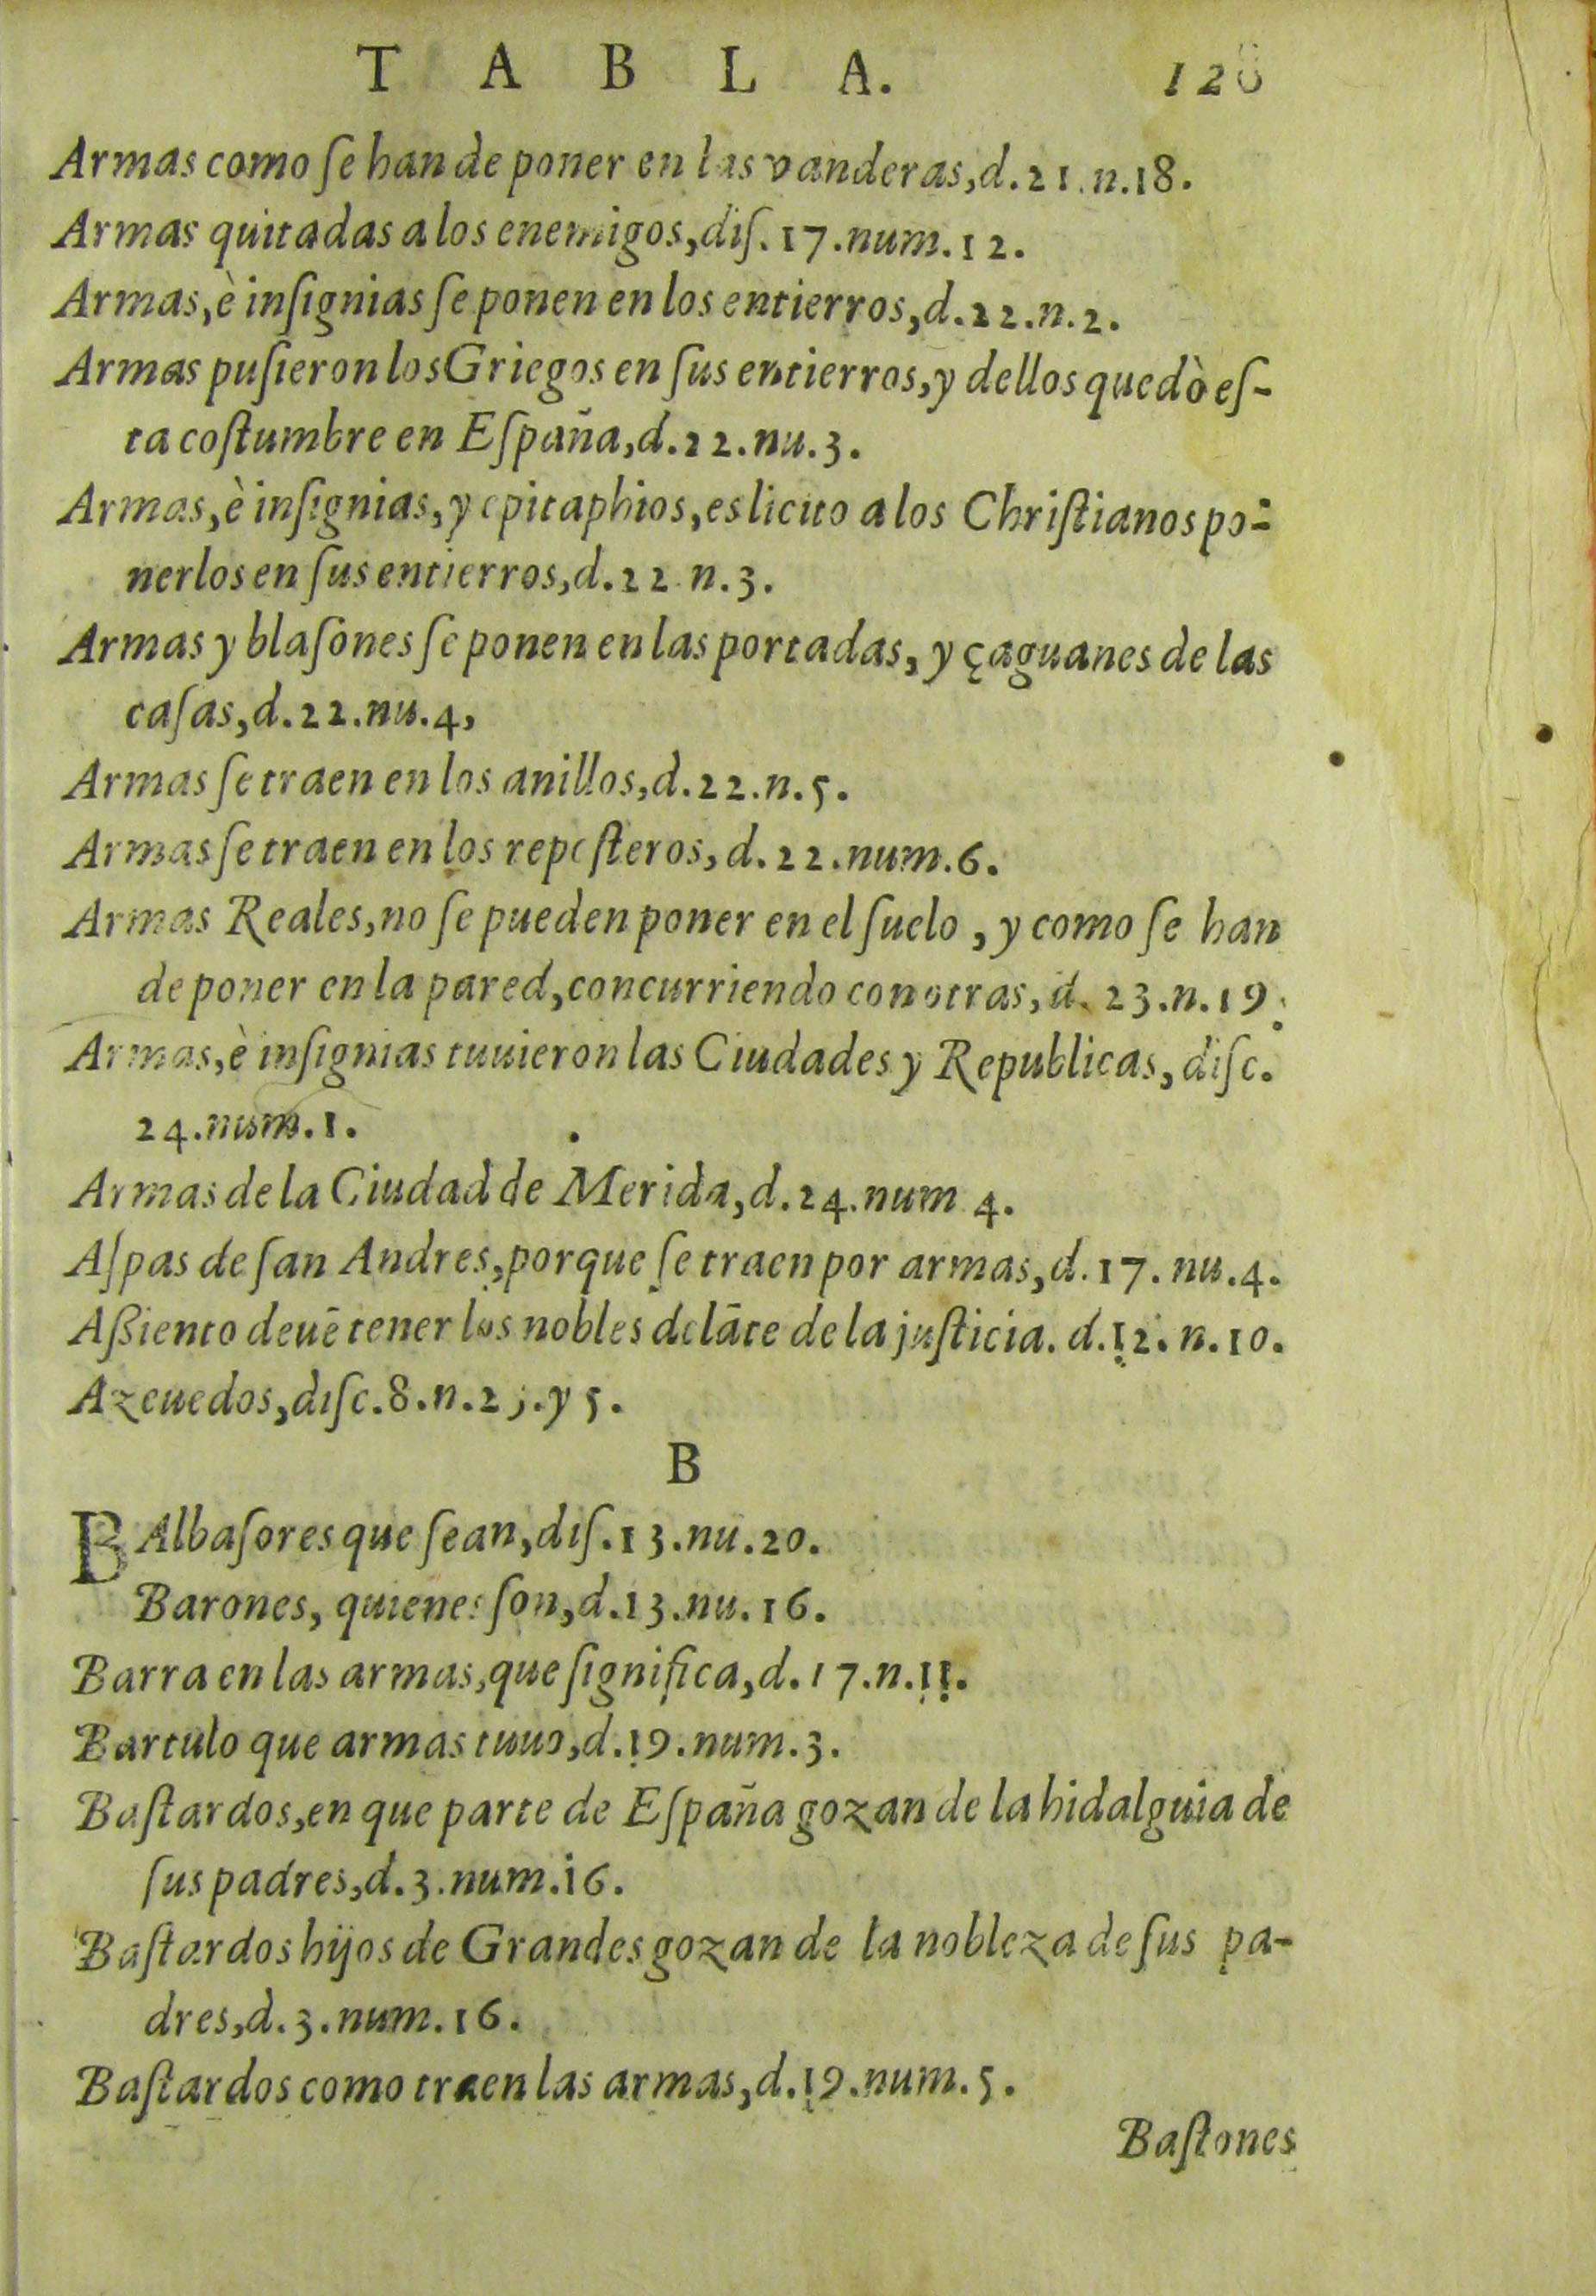 TABLA. 128
Armas como ſe han de poner en las vanderas, d. 21. n. 18.
Armas quitadas a los enemigos, diſ. 17. num. 12.
Armas, è inſignias ſe ponen en los entierros, d. 22. n. 2.
Armas puſieron los Griegos en ſus entierros, y dellos quedò eſ-
ta coſtumbre en Eſpaña, d. 22. nu. 3.
Armas, è inſignias, y epitaphios, es licito a los Chriſtianos po-
nerlos en ſus entierros, d. 22 n. 3.
Armas y blaſones ſe ponen en las portadas, y çaguanes de las
caſas, d. 22. nu. 4,
Armas ſe traen en los anillos, d. 22. n. 5.
Armas ſe traen en los repoſteros, d. 22. num. 6.
Armas Reales, no ſe pueden poner en el ſuelo, y como ſe han
de poner en la pared, concurriendo con otras, d. 23. n. 19.
Armas, è inſignias tuuieron las Ciudades y Republicas, diſc.
24. num. 1.
Armas de la Ciudad de Merida, d. 24. num 4.
Aſpas de ſan Andres, porque ſe traen por armas, d. 17. nu. 4.
Aßiento deuē tener los nobles delāte de la juſticia. d. 12. n. 10.
Azeuedos, diſc. 8. n. y 5.
B
BAlbaſores que ſean, diſ. 13. nu. 20.
Barones, quienes ſon, d. 13. nu. 16.
Barra en las armas, que ſignifica, d. 17. n. 11.
Bartulo que armas tuuo, d. 19. num. 3.
Baſtardos, en que parte de Eſpaña gozan de la hidalguia de
ſus padres, d. 3. num. 16.
Baſtardos hijos de Grandes gozan de la nobleza de ſus pa-
dres, d. 3. num. 16.
Baſtardos como traen las armas, d. 19. num. 5.
Baſtones